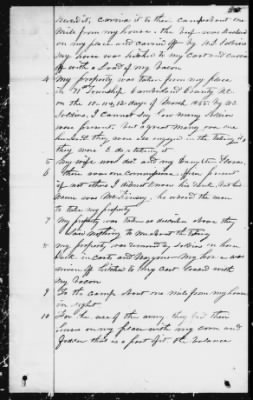 used it, carried it to their camp about one
mile from my house. the Beef was
on my place and carried off by U.S. Soldiers
my horse was hitched to my cart and carried
off with a load of my bacon
4 My property was taken from my place
in 71st Township Cumberland County NC
on the 10, 11 & 12 days of March 1865 by U.S.
Soldiers, I cannot say how many soldiers
were present, but a great many over one
hundred they were all engaged in the taking
they were 3 days taking it
5 My wife was and my Daughter
6 there was one commissioned officer present
if not others I do not know his Rank. But his
name was he ordered the men
to take my property
7 My property was taken as stated above they
said nothing to me about the taking
8 my property was removed by soldiers on horse
back in carts and waggons My horse was
driven off hitched to my cart loaded with
my bacon
9 To the camp about one mile from my house
in sight
10 For the use of the army they fed their
horses on my place with my corn and
fodder that is a part of it the balance